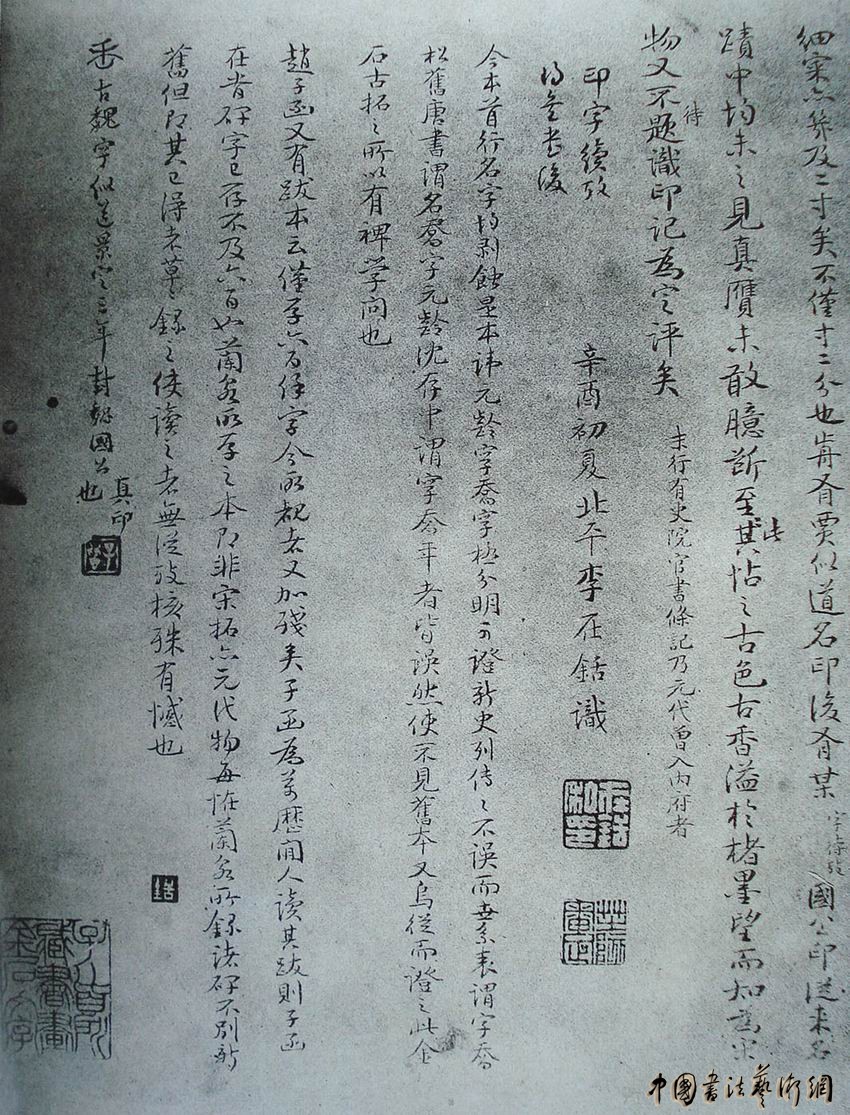 細案亦幾及二寸矣不僅寸二分也毎有賈似道名印後有某字待攷國公印從來名
蹟中均未之見真贋未敢臆斷至此其帖之古色古香溢於楮墨望而知為宋
物又不待題識印記為定評矣
末行有史院官書條記乃元代曾入內府者
印字續攷
得金書後
辛酉初夏北平李在銛識
今本首行名字均剥蝕是本諱元齡字喬字極分明可證新史列传之不误而世系表謂字喬
松舊唐書謂名喬字元齡沈存中謂字喬年者皆誤然使不見舊本又烏從而證之此金
石古拓之所以有裨学问也
趙子函又有跋本云僅存六百餘字今所覩者又加殘矣子函為萬歷間人讀其跋則子函
在肯碑字已存不及六百也蘭泉所存之本即非宋拓亦元代物每怪蘭泉所録諸碑不別新
舊但即其已得者草草録之使读之者無從攷核殊有憾也
古魏字似道景定三年封魏國公也
真印
中國書法藝術網